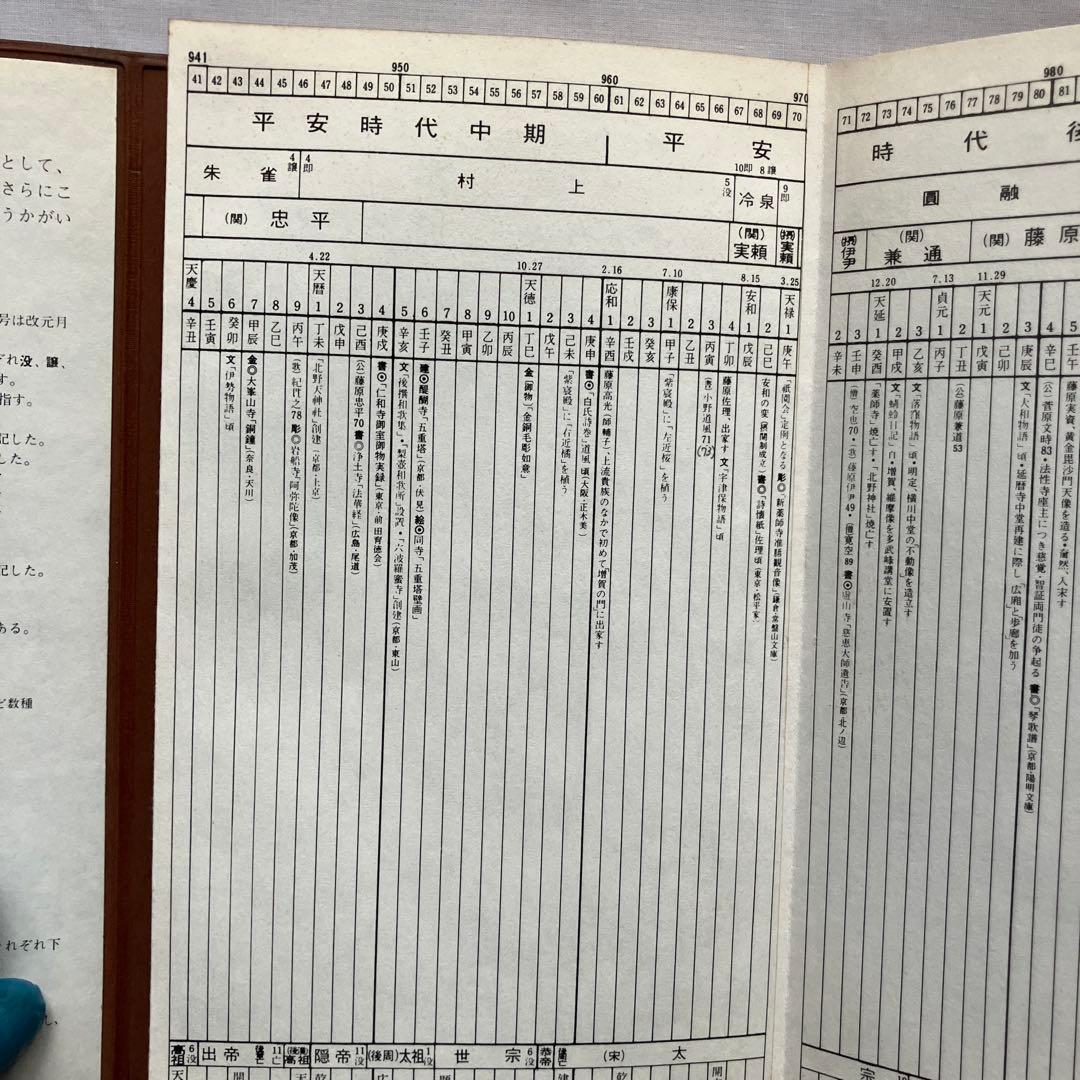 として、
さらにこ
うかがい
号は改元月
ぞれ没、譲、
す。
指す。
記した。
した。
記した。
ある。
ど数種
れぞれ下
941 950 960 970
41 42 43 44 45 46 47 48 49 50 51 52 53 54 55 56 57 58 59 60 61 62 63 64 65 66 67 68 69 70
平安時代中期 平安
朱雀 4譲 4即 村上 5没 10即 8譲 冷泉 9即
(関) 忠平 (関) 実頼 (摂) 実頼
4.22 10.27 2.16 7.10 8.15 3.25
天慶 4 辛丑
5 壬寅
6 癸卯 文「伊勢物語」頃
7 甲辰 金◎大峯山寺「銅鐘」(奈良・天川)
8 乙巳
9 丙午 (歌)紀貫之78 彫◎岩船寺「阿弥陀像」(京都・加茂)
天暦 1 丁未 「北野天神社」創建(京都・上京)
2 戊申
3 己酉 (公)藤原忠平70 書◎浄土寺「法華経」(広島・尾道)
4 庚戌 書◎「仁和寺御室御物実録」(東京・前田育徳会)
5 辛亥 文「後撰和歌集」・「梨壺和歌所」設置・「六波羅蜜寺」創建(京都・東山)
6 壬子 建◎醍醐寺「五重塔」(京都・伏見) 絵◎同寺「五重塔壁画」
7 癸丑
8 甲寅
9 乙卯
10 丙辰
天徳 1 丁巳 金(御物)「金銅毛彫如意」
2 戊午
3 己未 「紫宸殿」に「右近橘」を植う
4 庚申 書◎「白氏詩巻」道風頃(大阪・正木美)
応和 1 辛酉 藤原高光(師輔子)、上流貴族のなかで初めて「増賀の門」に出家す
2 壬戌
3 癸亥
康保 1 甲子 「紫宸殿」に「左近桜」を植う
2 乙丑
3 丙寅 (書)小野道風71 (73)
4 丁卯 藤原佐理、出家す 文「宇津保物語」頃
安和 1 戊辰
2 己巳 安和の変(摂関制成立) 書◎「詩懐紙」佐理頃(東京・松平家)
天禄 1 庚午 「祇園会」定例となる 彫◎「新薬師寺准胝観音像」(鎌倉・常盤山文庫)
高祖 6没 出帝 11亡 高祖 隠帝 11没 (後周)太祖 1没 世宗 6没 恭帝 (宋) 太
980
71 72 73 74 75 76 77 78 79 80 81
時代
圓融
(摂) 伊尹 (関) 兼通 (関) 藤原
12.20 7.13 11.29
2 辛未
3 壬申 (僧)空也70・(歌)藤原伊尹49・(僧)寛空89 書◎廬山寺「慈恵大師遺告」(京都・北ノ辺)
天延 1 癸酉 「薬師寺」焼亡す・「北野神社」焼亡す
2 甲戌 文「蜻蛉日記」自・増賀、維摩像を多武峰講堂に安置す
3 乙亥 文「落窪物語」頃・明定、横川中堂の「不動像」を造立す
貞元 1 丙子
2 丁丑 (公)藤原兼通53
天元 1 戊寅
2 己卯
3 庚辰 文「大和物語」頃・延暦寺中堂再建に際し「広廂」と「歩廊」を加う
4 辛巳 (公)菅原文時83・法性寺座主につき慈覚・智証両門徒の争起る 書◎「琴歌譜」(京都・陽明文庫)
5 壬午 藤原実資、黄金毘沙門天像を造る・奝然、入宋す